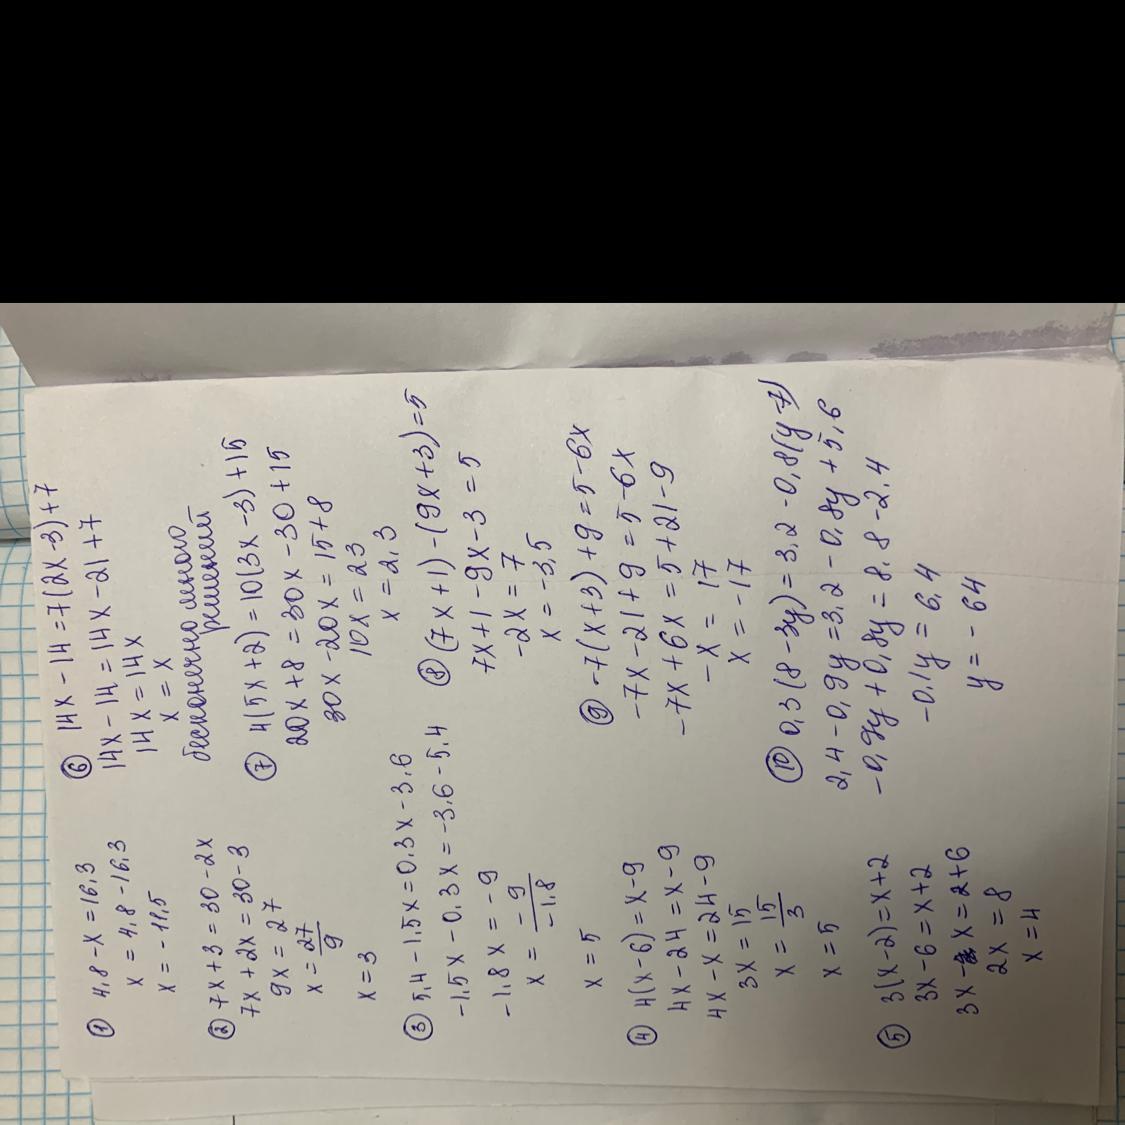 ① 4,8 - x = 16,3
x = 4,8 - 16,3
x = -11,5
② 7x + 3 = 30 - 2x
7x + 2x = 30 - 3
9x = 27
x = 27/9
x = 3
③ 5,4 - 1,5x = 0,3x - 3,6
-1,5x - 0,3x = -3,6 - 5,4
-1,8x = -9
x = -9/-1,8
x = 5
④ 4(x - 6) = x - 9
4x - 24 = x - 9
4x - x = 24 - 9
3x = 15
x = 15/3
x = 5
⑤ 3(x - 2) = x + 2
3x - 6 = x + 2
3x - x = 2 + 6
2x = 8
x = 4
⑥ 14x - 14 = 7(2x - 3) + 7
14x - 14 = 14x - 21 + 7
14x = 14x
x = x
бесконечно много
решений
⑦ 4(5x + 2) = 10(3x - 3) + 15
20x + 8 = 30x - 30 + 15
30x - 20x = 15 + 8
10x = 23
x = 2,3
⑧ (7x + 1) - (9x + 3) = 5
7x + 1 - 9x - 3 = 5
-2x = 7
x = -3,5
⑨ -7(x + 3) + 9 = 5 - 6x
-7x - 21 + 9 = 5 - 6x
-7x + 6x = 5 + 21 - 9
-x = 17
x = -17
⑩ 0,3(8 - 3y) = 3,2 - 0,8(y - 7)
2,4 - 0,9y = 3,2 - 0,8y + 5,6
-0,9y + 0,8y = 8,8 - 2,4
-0,1y = 6,4
y = -64